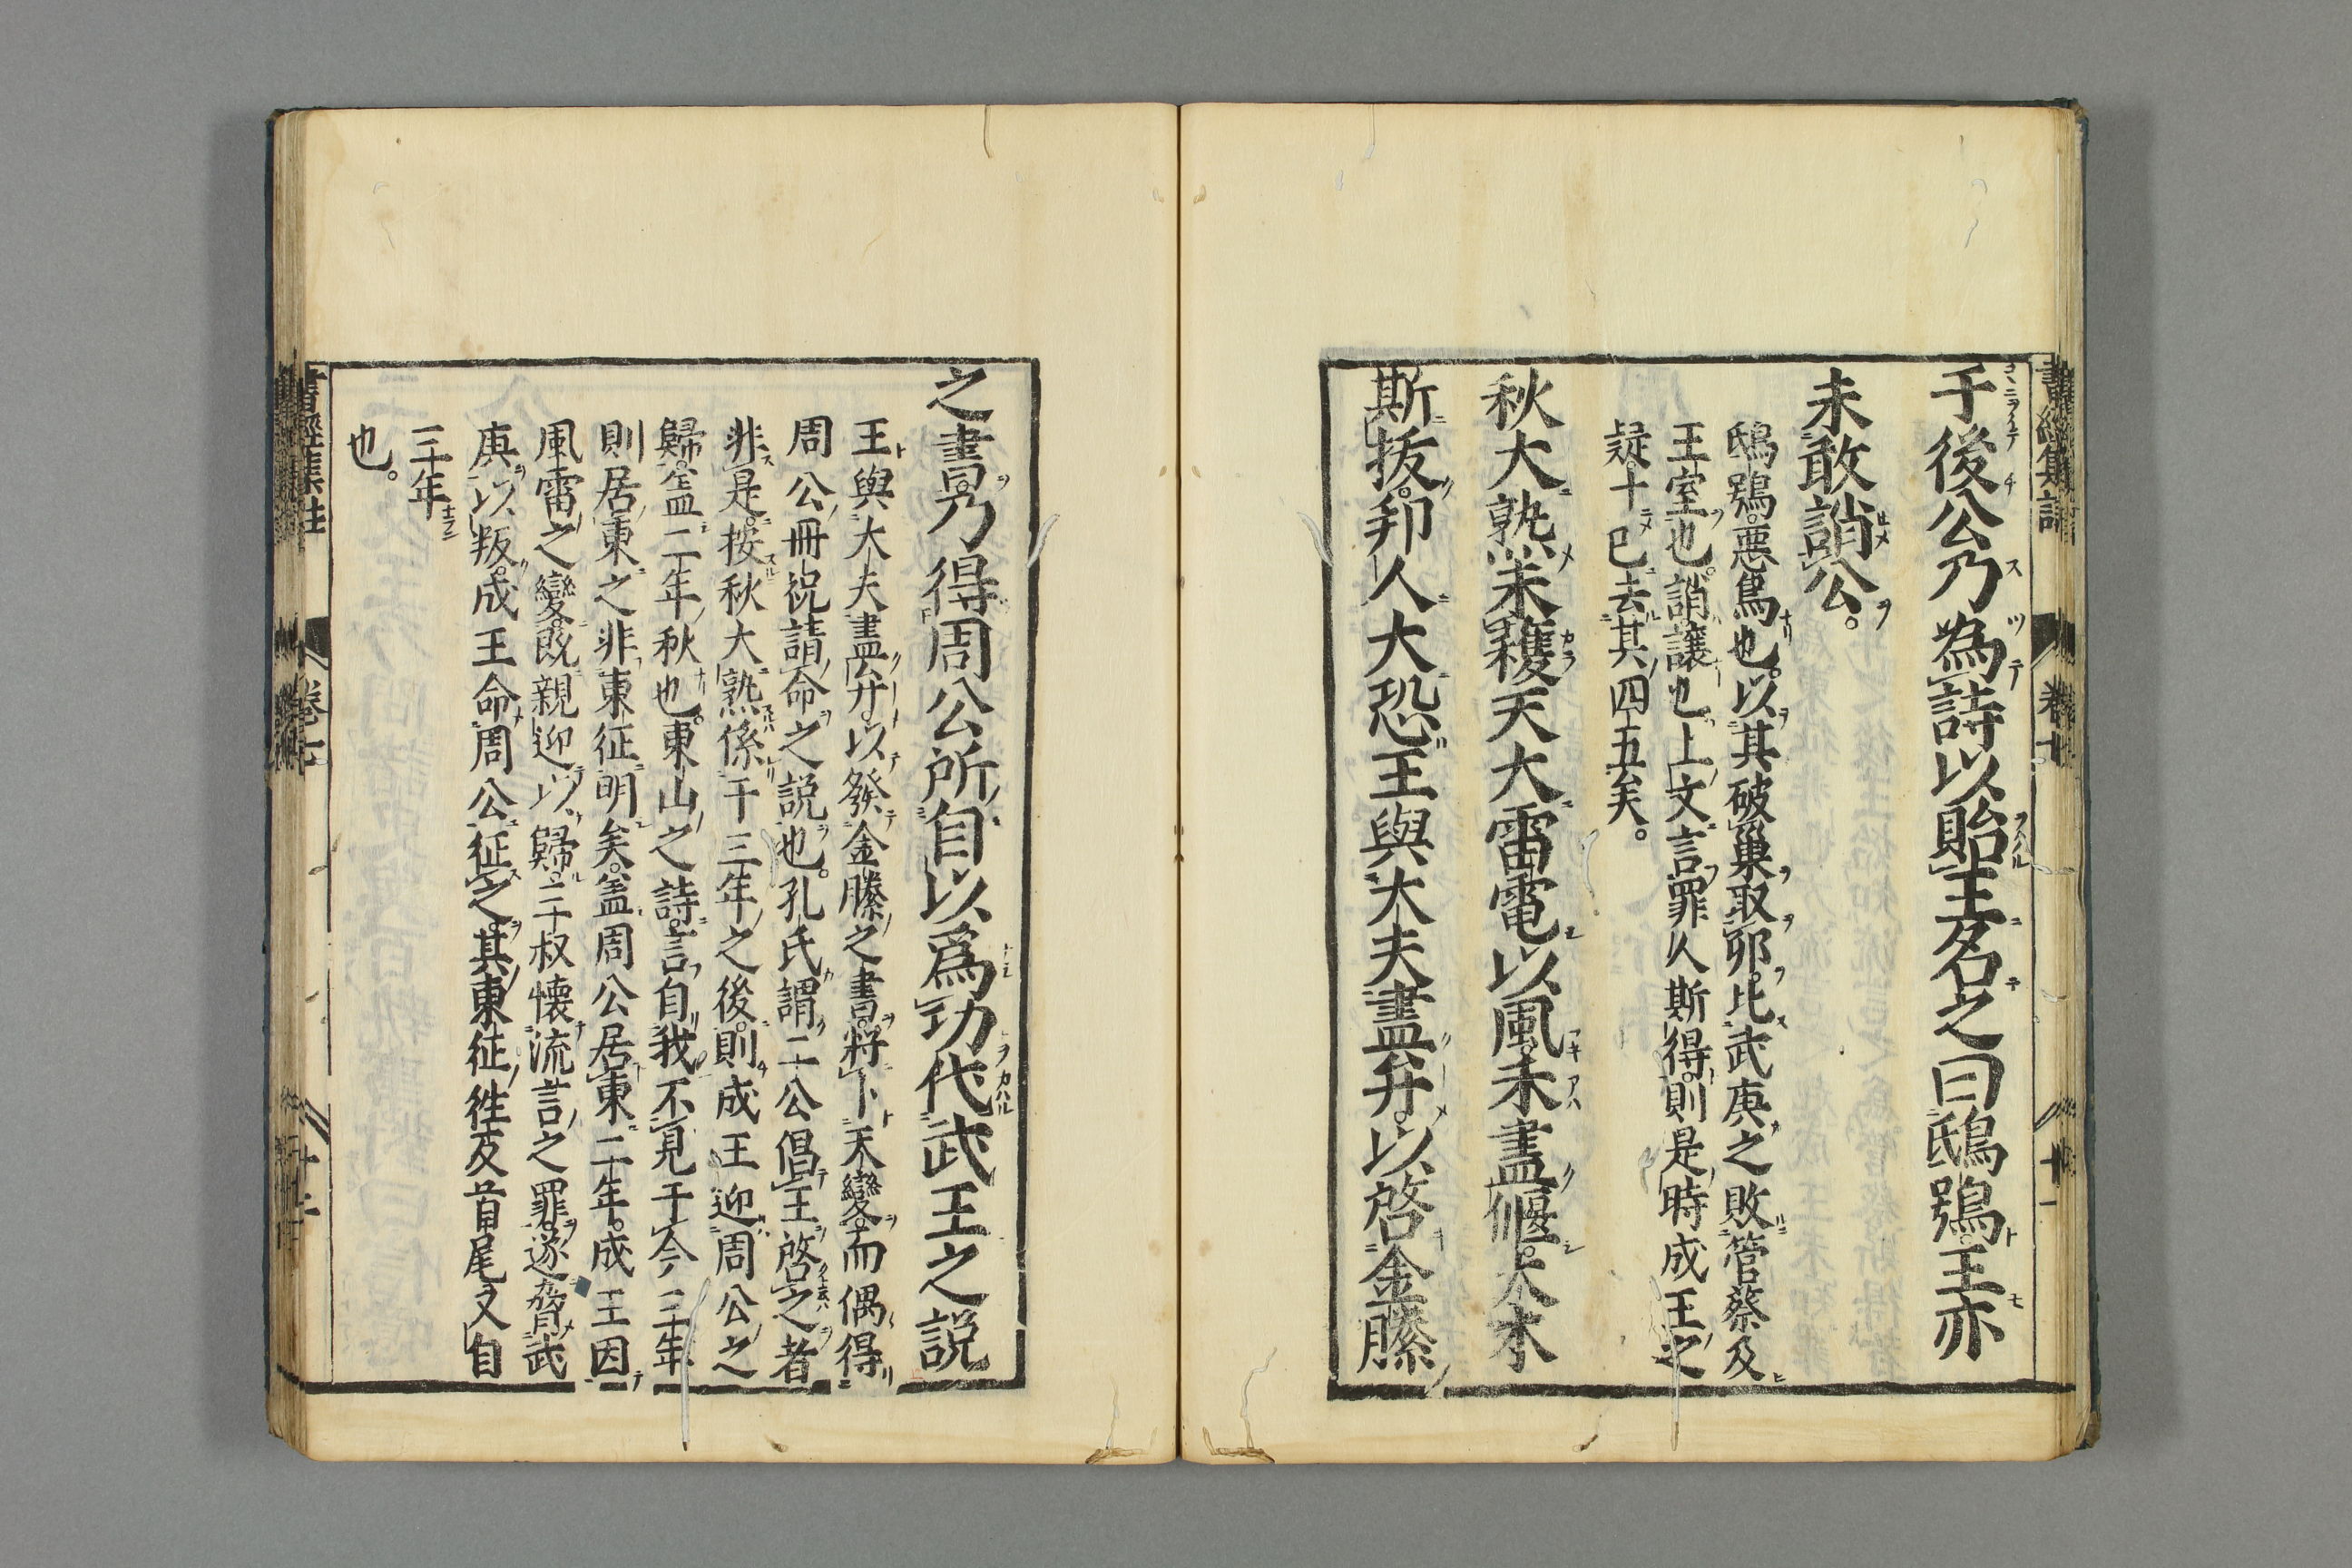 書經集註 卷七 十一
于後公乃為詩以貽王名之曰鴟鴞王亦
未敢誚公。
鴟鴞。惡鳥也。以其破巢取卵。比武庚之敗管蔡及
王室也。誚讓也。上文言罪人斯得。則是時成王之
疑。十已去其四五矣。
秋大熟未穫天大雷電以風。禾盡偃。大木
斯拔。邦人大恐王與大夫盡弁。以啓金縢
之書。乃得周公所自以爲功代武王之説
王與大夫盡弁。以發金縢之書。將卜天變。而偶得
周公冊祝請命之説也。孔氏謂二公倡王啓之者
非是。按秋大熟係于三年之後。則成王迎周公之
歸。盖二年秋也。東山之詩。言自我不見于今三年
則居東之非東征明矣。盖周公居東二年。成王因
風雷之變。既親迎以歸。三叔懷流言之罪。遂脅武
庚以叛。成王命周公征之。其東征徃反首尾又自
三年
也。
書經集註 卷七 十二